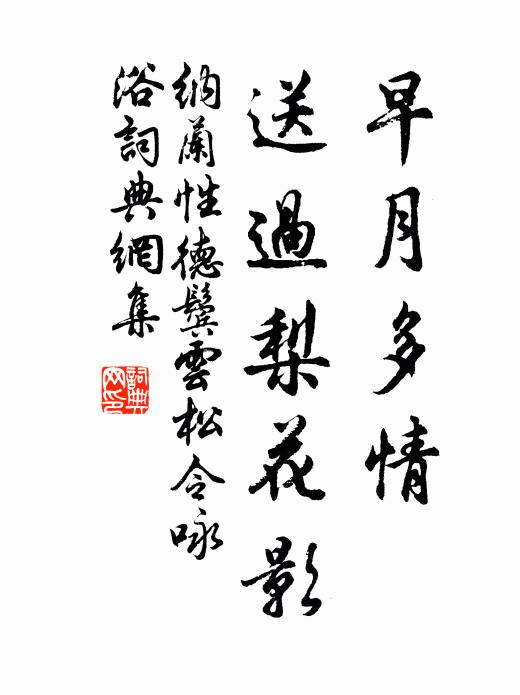 早月多情
送過梨花影
納蘭性德鬢雲松令咏
浴詞典網集
詞典
网印